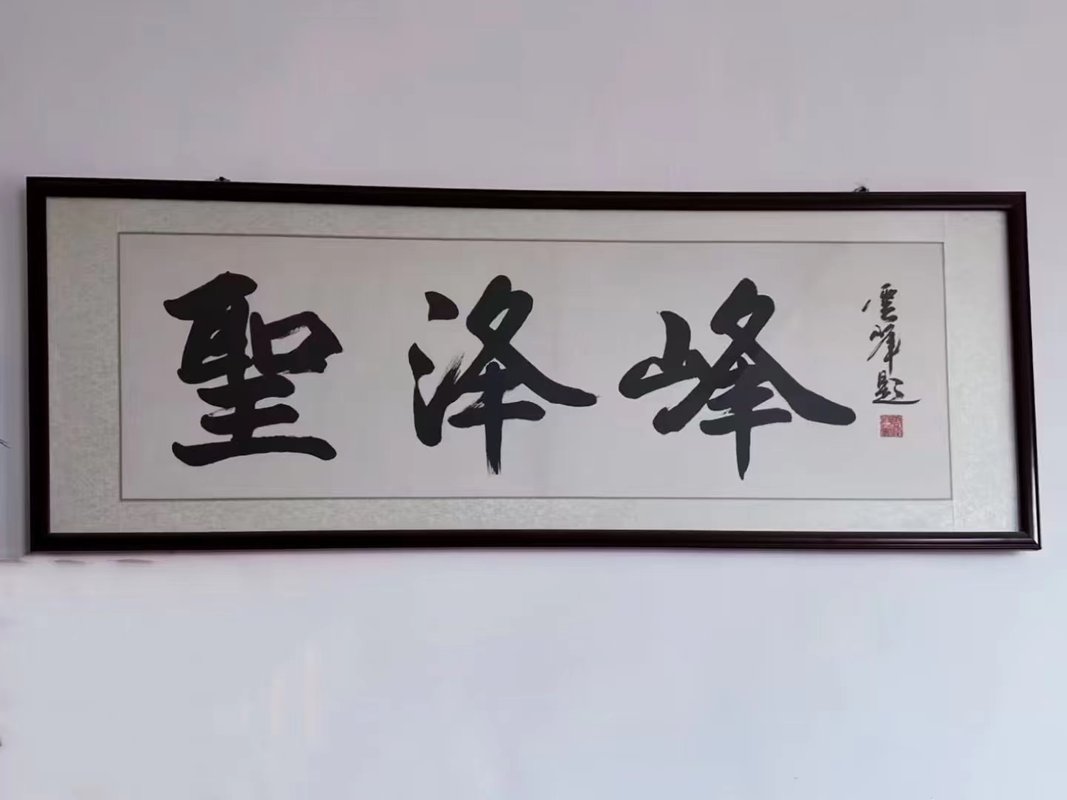 聖泽峰
雲峰题